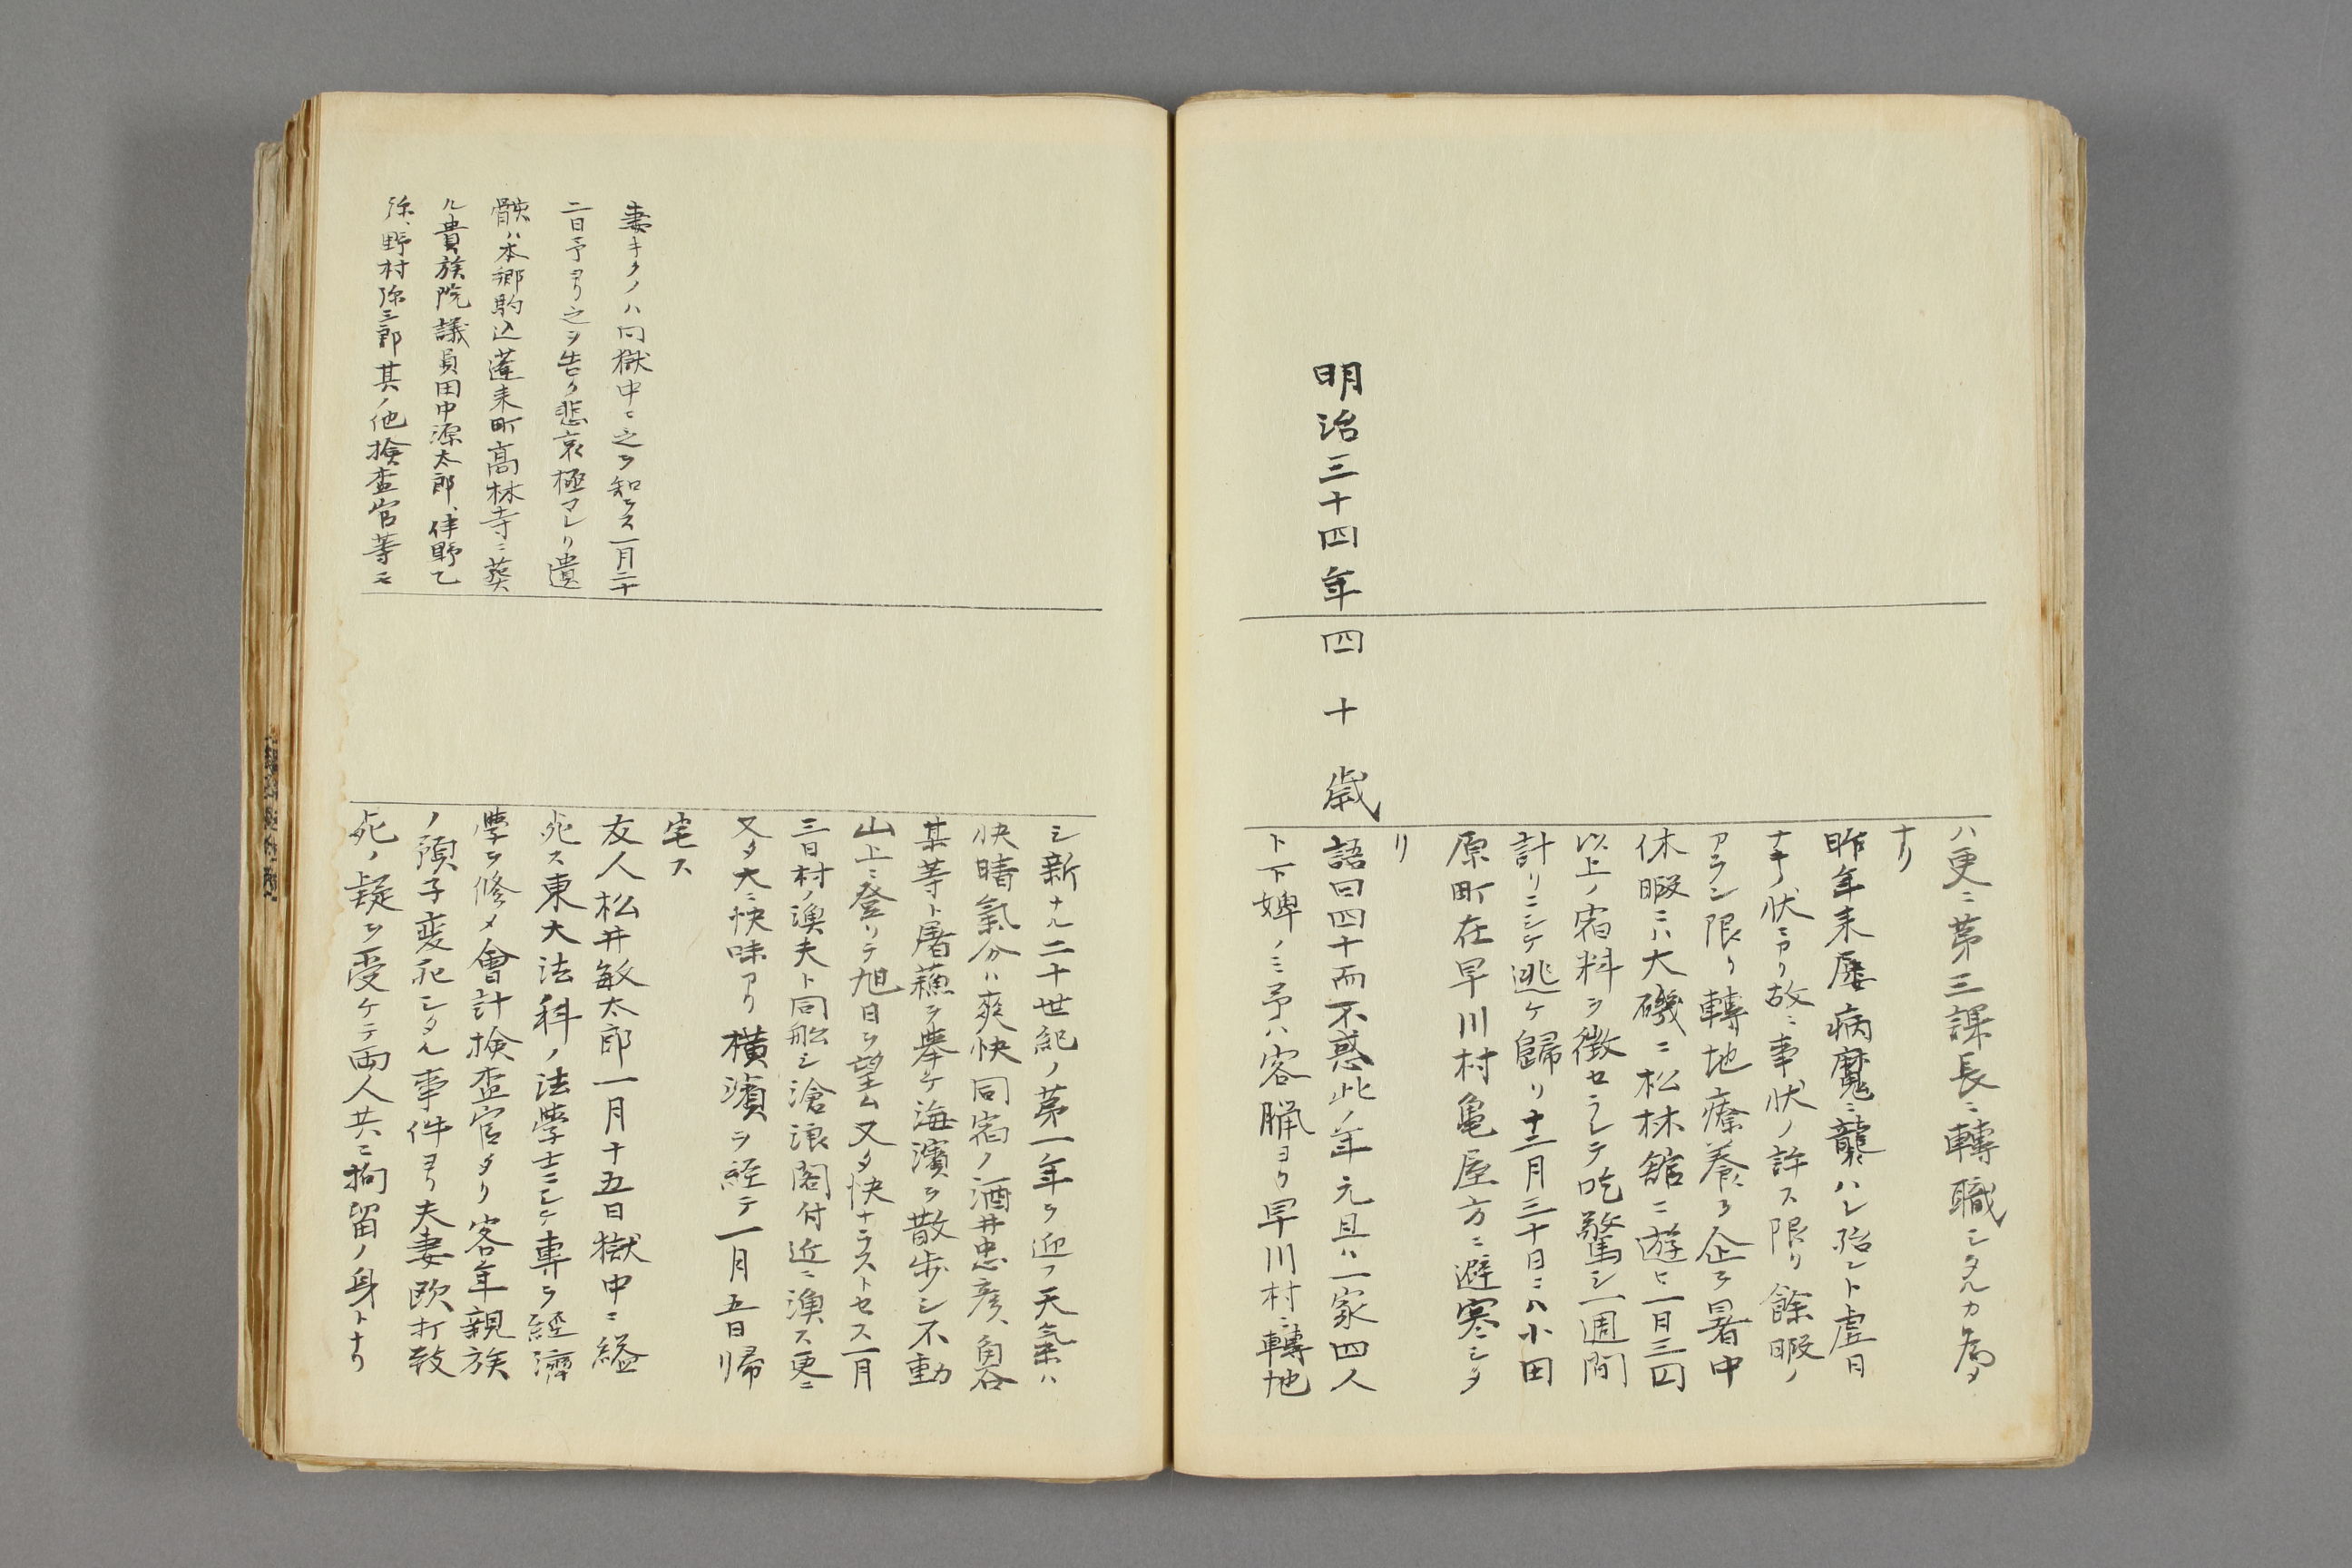 ハ更ニ第三課長ニ轉職シタルカ為タ
ナリ
昨年来屡病魔ニ襲ハレ殆ント虚日
ナキノ状ニアリ故ニ事状ノ許ス限リ餘暇ノ
アラン限リ轉地療養ヲ企ツ暑中
休暇ニハ大磯ニ松林舘ニ遊ヒ一日三円
以上ノ宿料ヲ徴セラレテ吃驚シ一週間
計リニシテ逃ケ歸リ十二月三十日ニハ小田
原町在早川村亀屋方ニ避寒シタ
リ
明治三十四年四十歳
語曰四十而不惑此ノ年元旦ハ一家四人
ト下婢ノミ予ハ客臘ヨリ早川村ニ轉地
シ新ナル二十世紀ノ第一年ヲ迎フ天気ハ
快晴氣分ハ爽快同宿ノ酒井忠彦、角谷
某等ト屠蘇ヲ擧ケ海濱ヲ散歩シ不動
山上ニ登リテ旭日ヲ望ム又タ快ナラストセス一月
三日村ノ漁夫ト同舩シ滄浪閣付近ニ漁ス更ニ
又タ大ニ快味アリ横濱ヲ経テ一月五日帰
宅ス
友人松井敏太郎一月十五日獄中ニ縊
死ス東大法科ノ法學士ニシテ専ラ經濟
學ヲ修メ會計検査官タリ客年親族
ノ預子変死シタル事件ヨリ夫妻欧打致
死ノ疑ヲ受ケテ両人共ニ拘留ノ身トナリ
妻キクノハ同獄中ニ之ヲ知ラス一月二十
二日予ヨリ之ヲ告ク悲哀極マレリ遺
骸ハ本郷駒込蓬来町高林寺ニ葬
ル貴族院議員田中源太郎、伴野乙
弥、野村弥三郎其ノ他検査官等モ